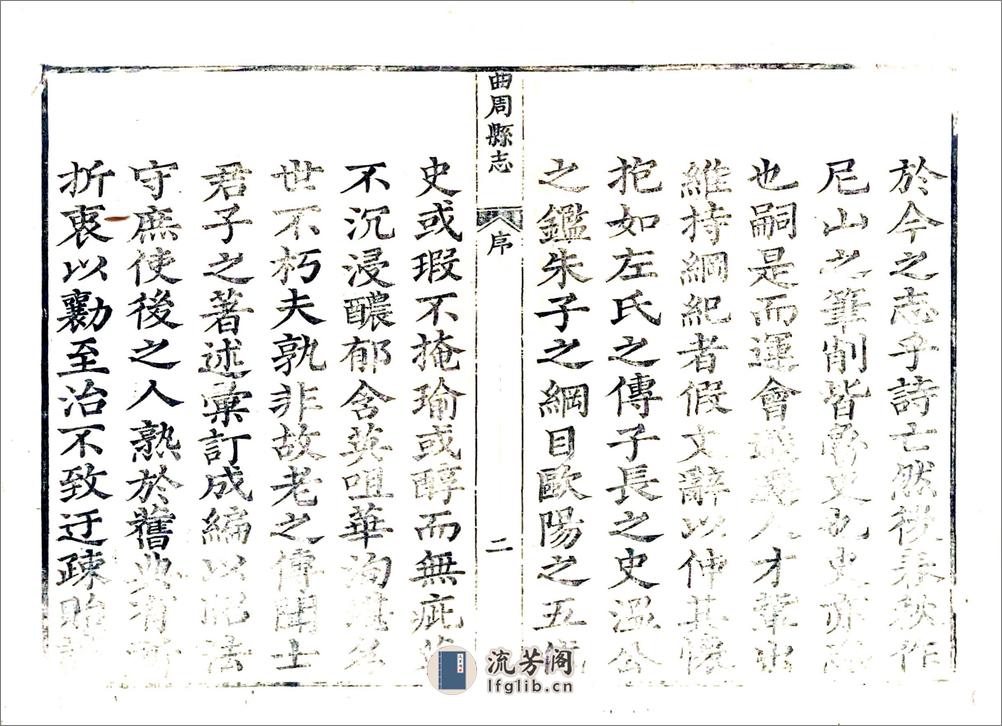 於今之志乎詩亡然後春秋作
尼山之筆削皆魯史也史亦
也嗣是而運會 人才輩出
維持綱紀者假文辭以伸其懷
抱如左氏之傳子長之史溫公
之鑑朱子之綱目歐陽之五代
曲周縣志
序
二
史或瑕不掩瑜或醇而無疵
不沉浸醲郁含英咀華
世不朽夫孰非故老之
君子之著述彙訂成編以昭法
守庶使後之人熟於舊典有所
折衷以襄至治不致迂疎貽
流芳阁
lfglib.cn